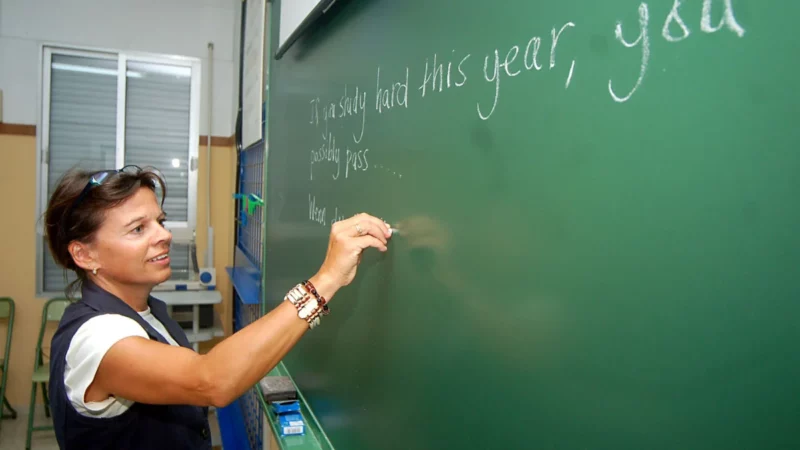 If you study hard this year, you
possibly pass.....
When